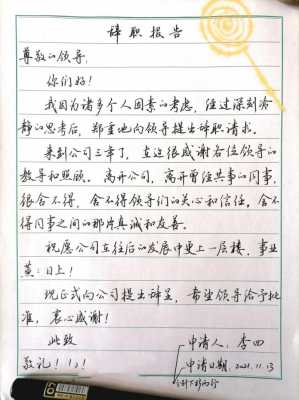 辞职报告
尊敬的领导:
你们好!
我因为诸多个人因素的考虑,经过深刻冷
静的思考后,郑重地向领导提出辞职请求。
来到公司三年了,直这很感谢各位领导的
教导和照顾。离开公司,离开曾经共事的同事,
很舍不得,舍不得领导们的关心和信任,舍不
得同事之间的那片真诚和友善。
祝愿公司在往后的发展中更上一层楼,事业
蒸蒸日上!
现正式向公司提出辞呈,希望领导给予批
准,衷心感谢!
此致
申请人:李四
敬礼!
申请日期:2021.11.13